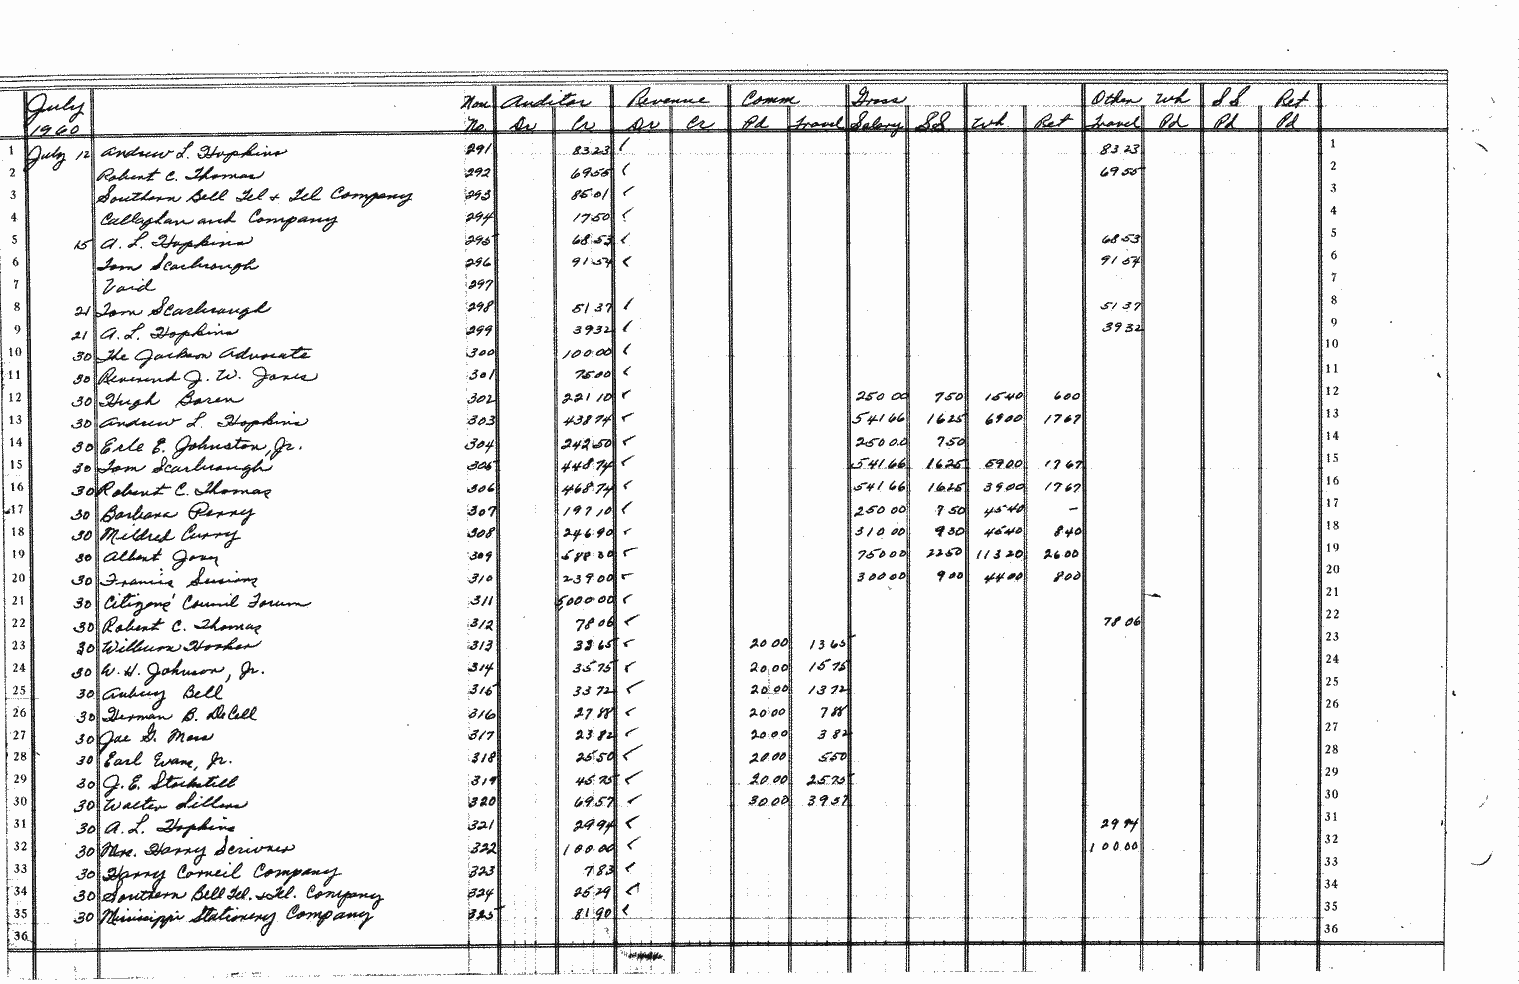 July Nou Auditor Revenue Comm Gross Other Wh SS Ret
1960 No. Dr Cr Dr Cr Pd Travel Salary SS Wh Ret Travel Pd Pd Pd
1 July 12 Andrew L. Hopkins 291 83 23 83 23 1
2 Robert C. Thomas 292 69 55 69 55 2
3 Southern Bell Tel & Tel Company 293 85 01 3
4 Callaghan and Company 294 17 50 4
5 15 A. L. Hopkins 295 68 53 68 53 5
6 Tom Scarbrough 296 91 54 91 54 6
7 Void 297 7
8 21 Tom Scarbrough 298 51 37 51 37 8
9 21 A. L. Hopkins 299 39 32 39 32 9
10 30 The Jackson Advocate 300 100 00 10
11 30 Reverend J. W. Jones 301 75 00 11
12 30 Hugh Boren 302 221 10 250 00 7 50 15 40 6 00 12
13 30 Andrew L. Hopkins 303 438 74 541 66 16 25 69 00 17 67 13
14 30 Erle E. Johnston, Jr. 304 242 50 250 00 7 50 14
15 30 Tom Scarbrough 305 448 74 541 66 16 25 59 00 17 67 15
16 30 Robert C. Thomas 306 468 74 541 66 16 25 39 00 17 67 16
17 30 Barbara Perry 307 197 10 250 00 7 50 45 40 - 17
18 30 Mildred Curry 308 246 90 310 00 9 30 45 40 8 40 18
19 30 Albert Jones 309 588 30 750 00 22 50 113 20 26 00 19
20 30 Francis Sessions 310 239 00 300 00 9 00 44 00 8 00 20
21 30 Citizens' Council Forum 311 5,000 00 21
22 30 Robert C. Thomas 312 78 06 78 06 22
23 30 Wilburn Hooker 313 33 65 20 00 13 65 23
24 30 W. H. Johnson, Jr. 314 35 75 20 00 15 75 24
25 30 Aubrey Bell 315 33 72 20 00 13 72 25
26 30 Herman B. DeCell 316 27 88 20 00 7 88 26
27 30 Joe G. Moss 317 23 82 20 00 3 82 27
28 30 Earl Evans, Jr. 318 25 50 20 00 5 50 28
29 30 J. E. Stockstill 319 45 75 20 00 25 75 29
30 30 Walter Sillers 320 69 57 30 00 39 57 30
31 30 A. L. Hopkins 321 29 94 29 94 31
32 30 Mrs. Harry Scrivner 322 100 00 100 00 32
33 30 Harry Corneil Company 323 7 83 33
34 30 Southern Bell Tel. & Tel. Company 324 25 29 34
35 30 Mississippi Stationery Company 325 81 90 35
36 36